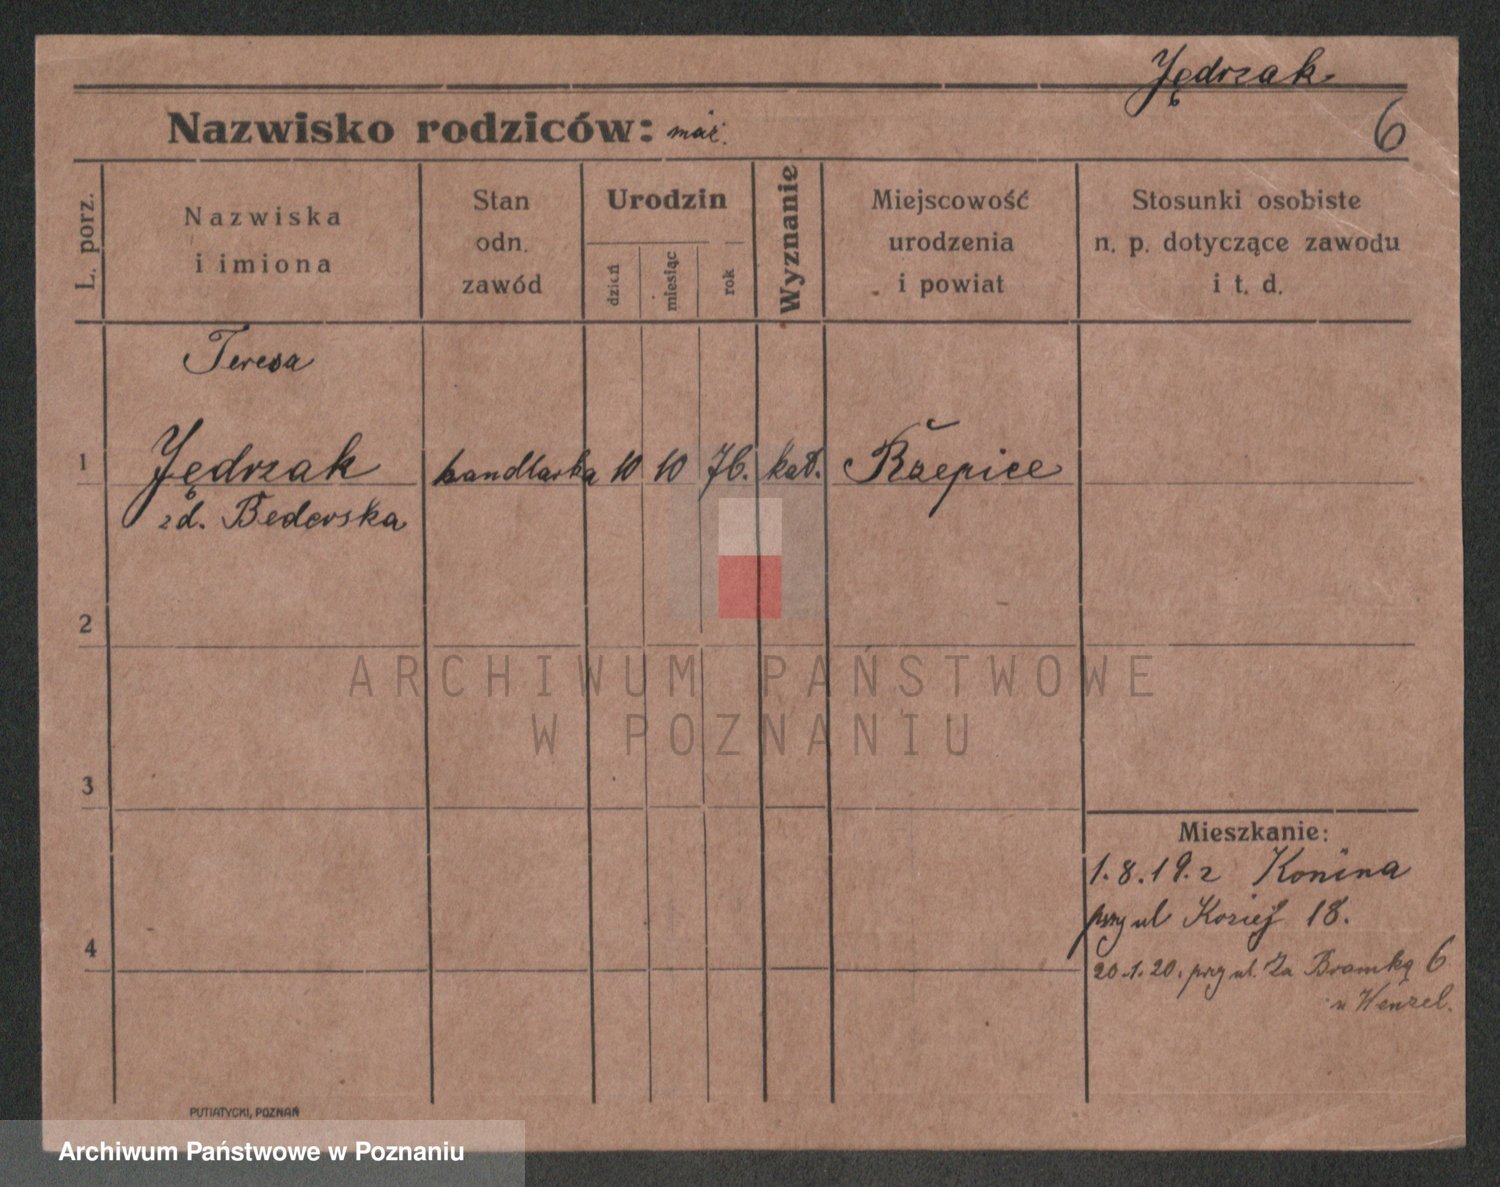 Jędrzak
Nazwisko rodziców: 6
L. porz.
Nazwiska
i imiona
Stan
odn.
zawód
Urodzin
dzień
miesiąc
rok
Wyznanie
Miejscowość
urodzenia
i powiat
Stosunki osobiste
n. p. dotyczące zawodu
i t. d.
Teresa
1 Jędrzak handlarka 10 10 76. kat. Rzepice
zd. Bederska
2
3
4
Mieszkanie:
1.8.19. z Konina
przy ul Koziej 18.
20.1.20. przy ul. Za Bramką 6
u Wenzel.
PUTIATYCKI, POZNAŃ
ARCHIWUM PAŃSTWOWE
W POZNANIU
Archiwum Państwowe w Poznaniu